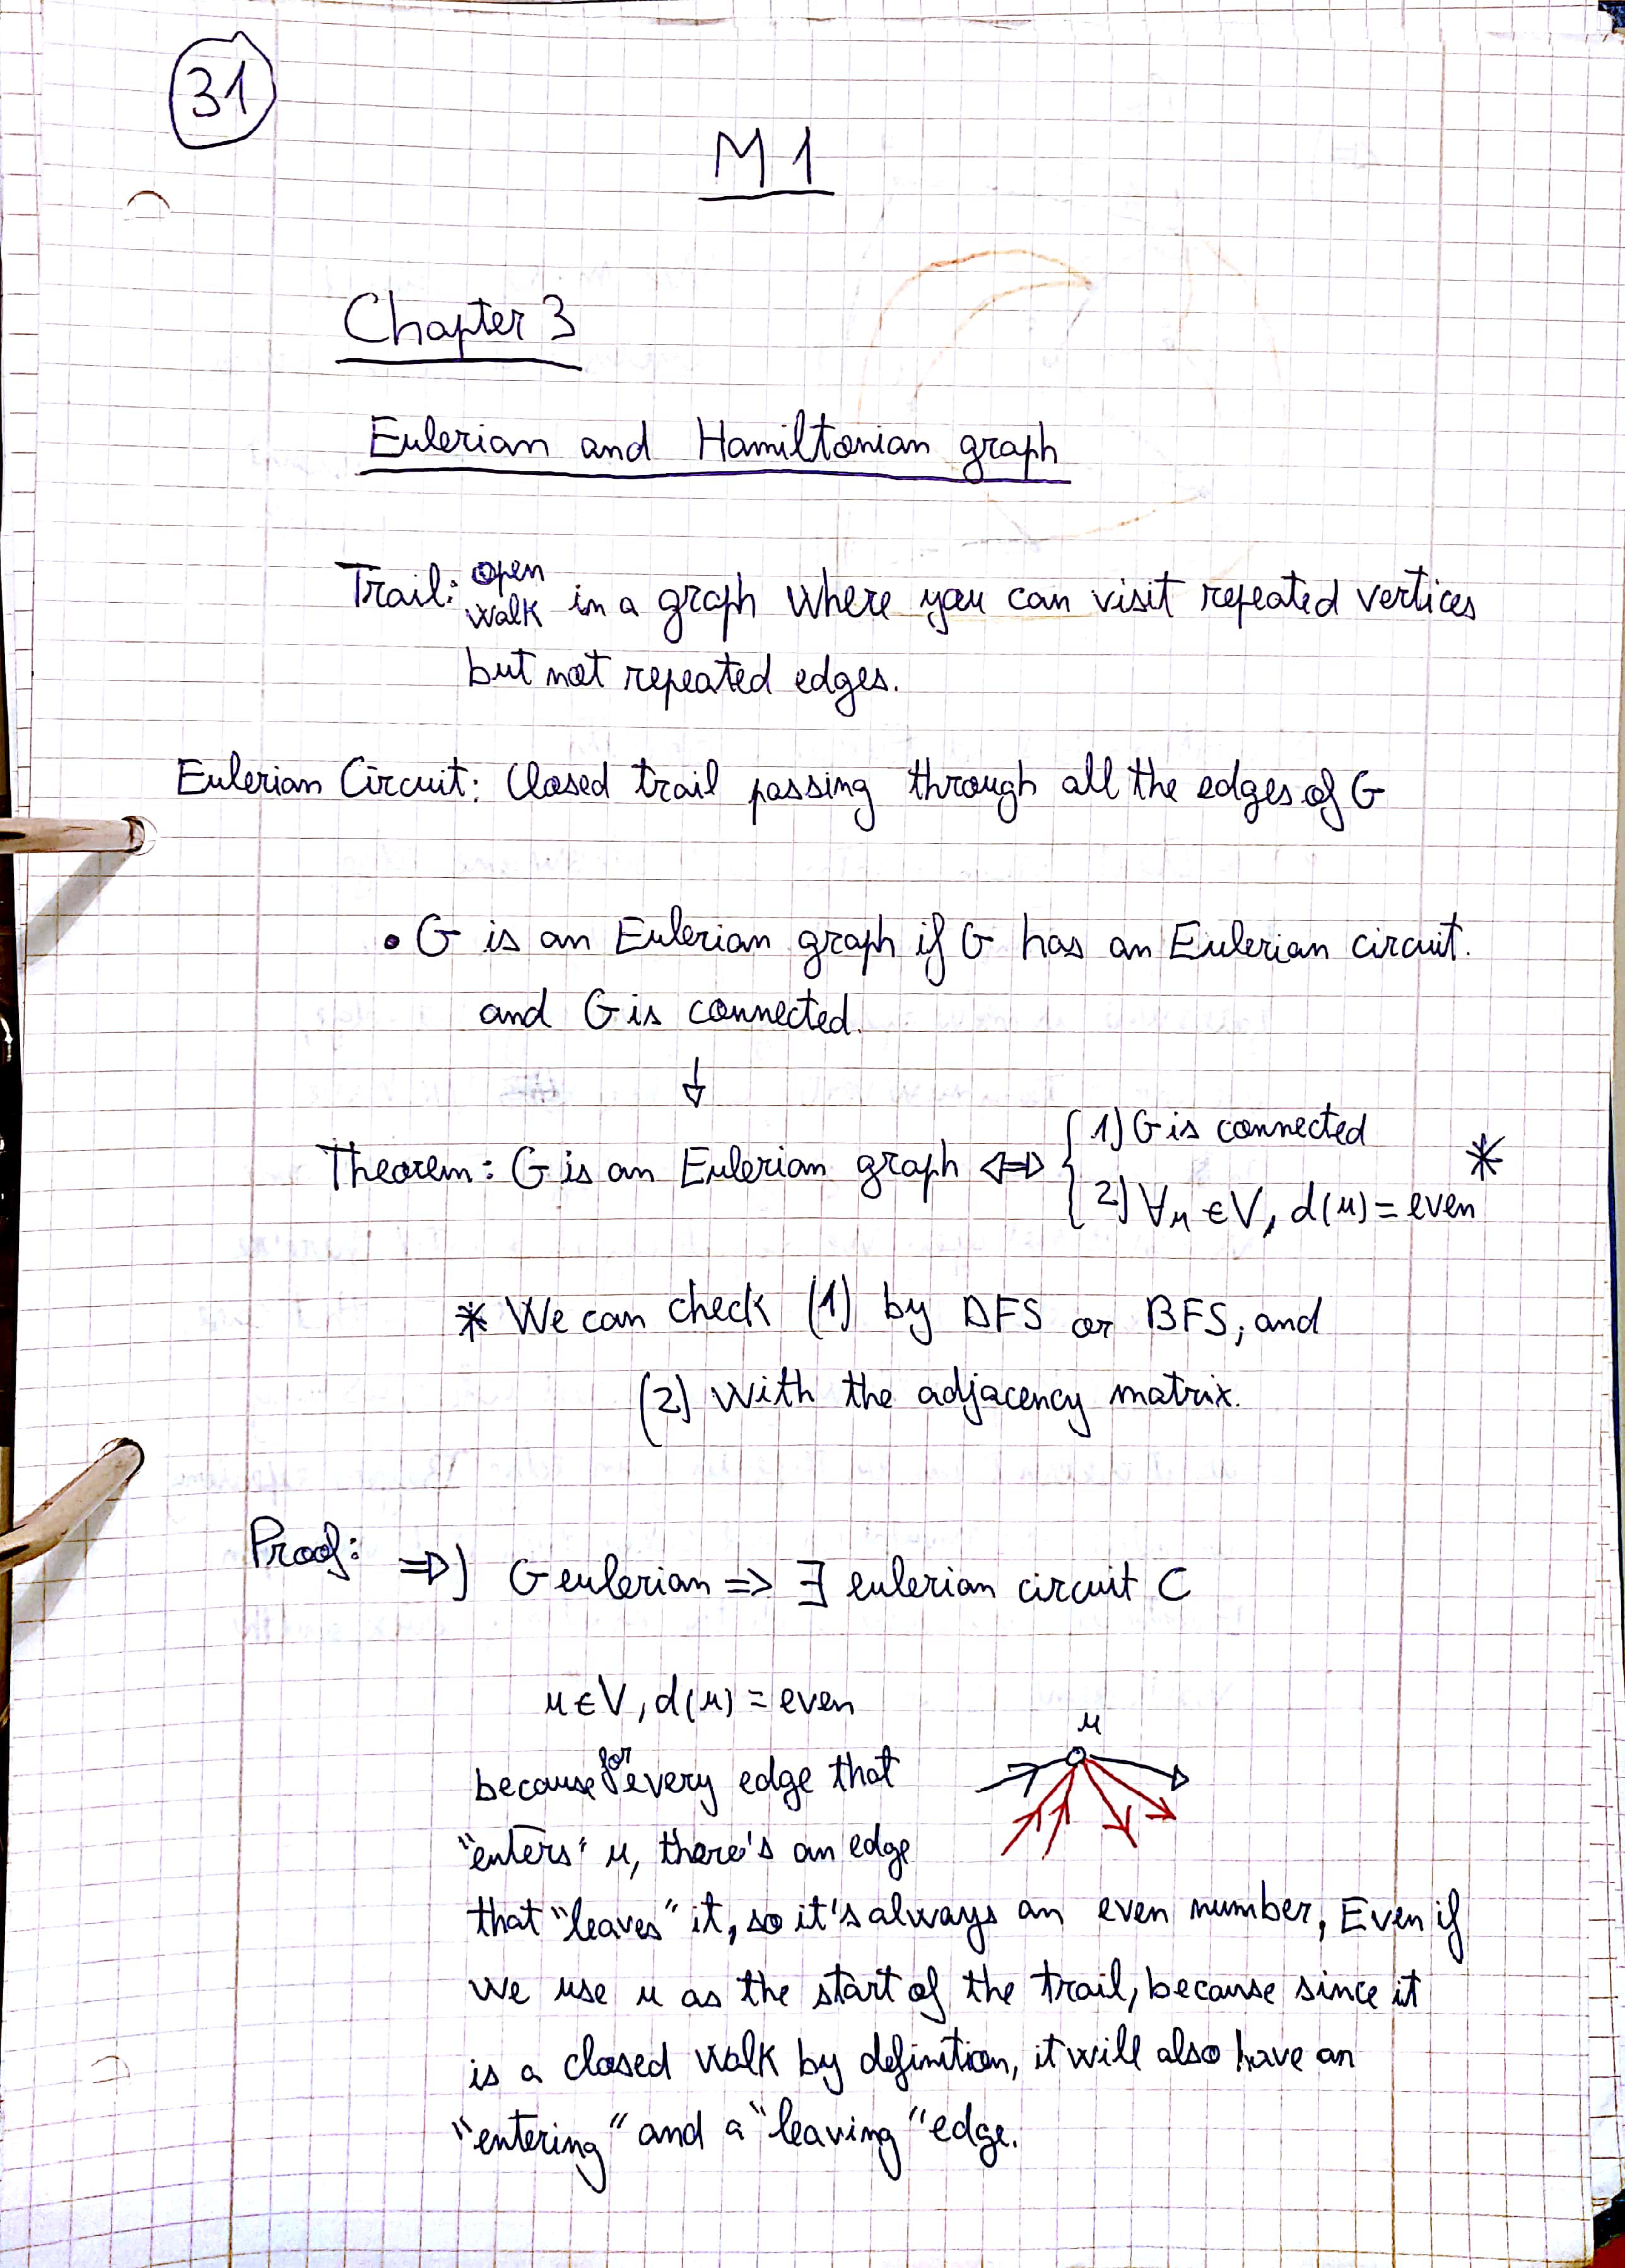 31
M1
Chapter 3
Eulerian and Hamiltonian graph
Trail: open walk in a graph where you can visit repeated vertices
but not repeated edges.
Eulerian Circuit: Closed trail passing through all the edges of G
• G is an Eulerian graph if G has an Eulerian circuit.
and G is connected.
↓
Theorem: G is an Eulerian graph ⇔ { 1) G is connected
2) ∀u ∈ V, d(u) = even *
* We can check (1) by DFS or BFS, and
(2) with the adjacency matrix.
Proof: ⇒) G eulerian => ∃ eulerian circuit C
u ∈ V, d(u) = even
u
because for every edge that
"enters" u, there's an edge
that "leaves" it, so it's always an even number, Even if
we use u as the start of the trail, because since it
is a closed walk by definition, it will also have an
"entering" and a "leaving" edge.